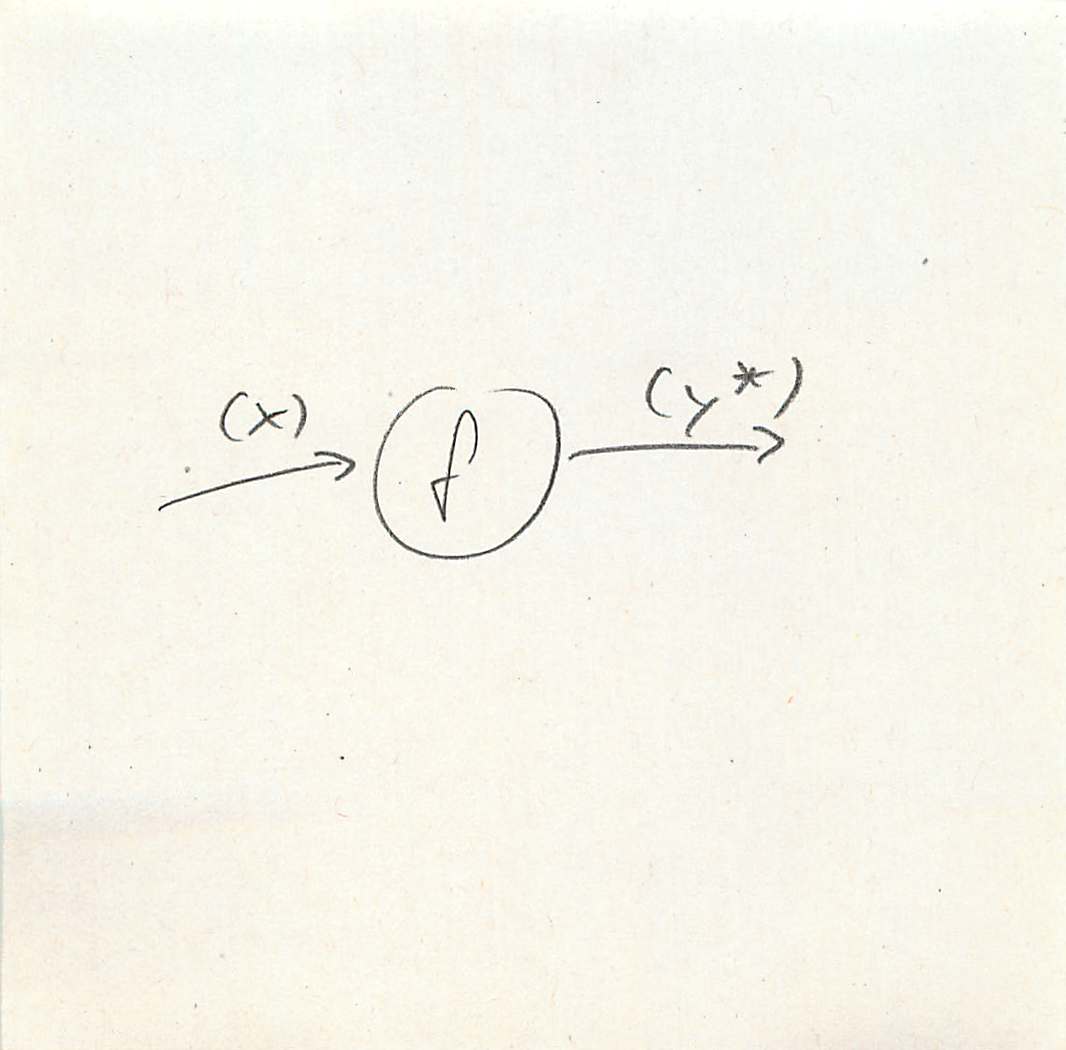 (x) f (y*)